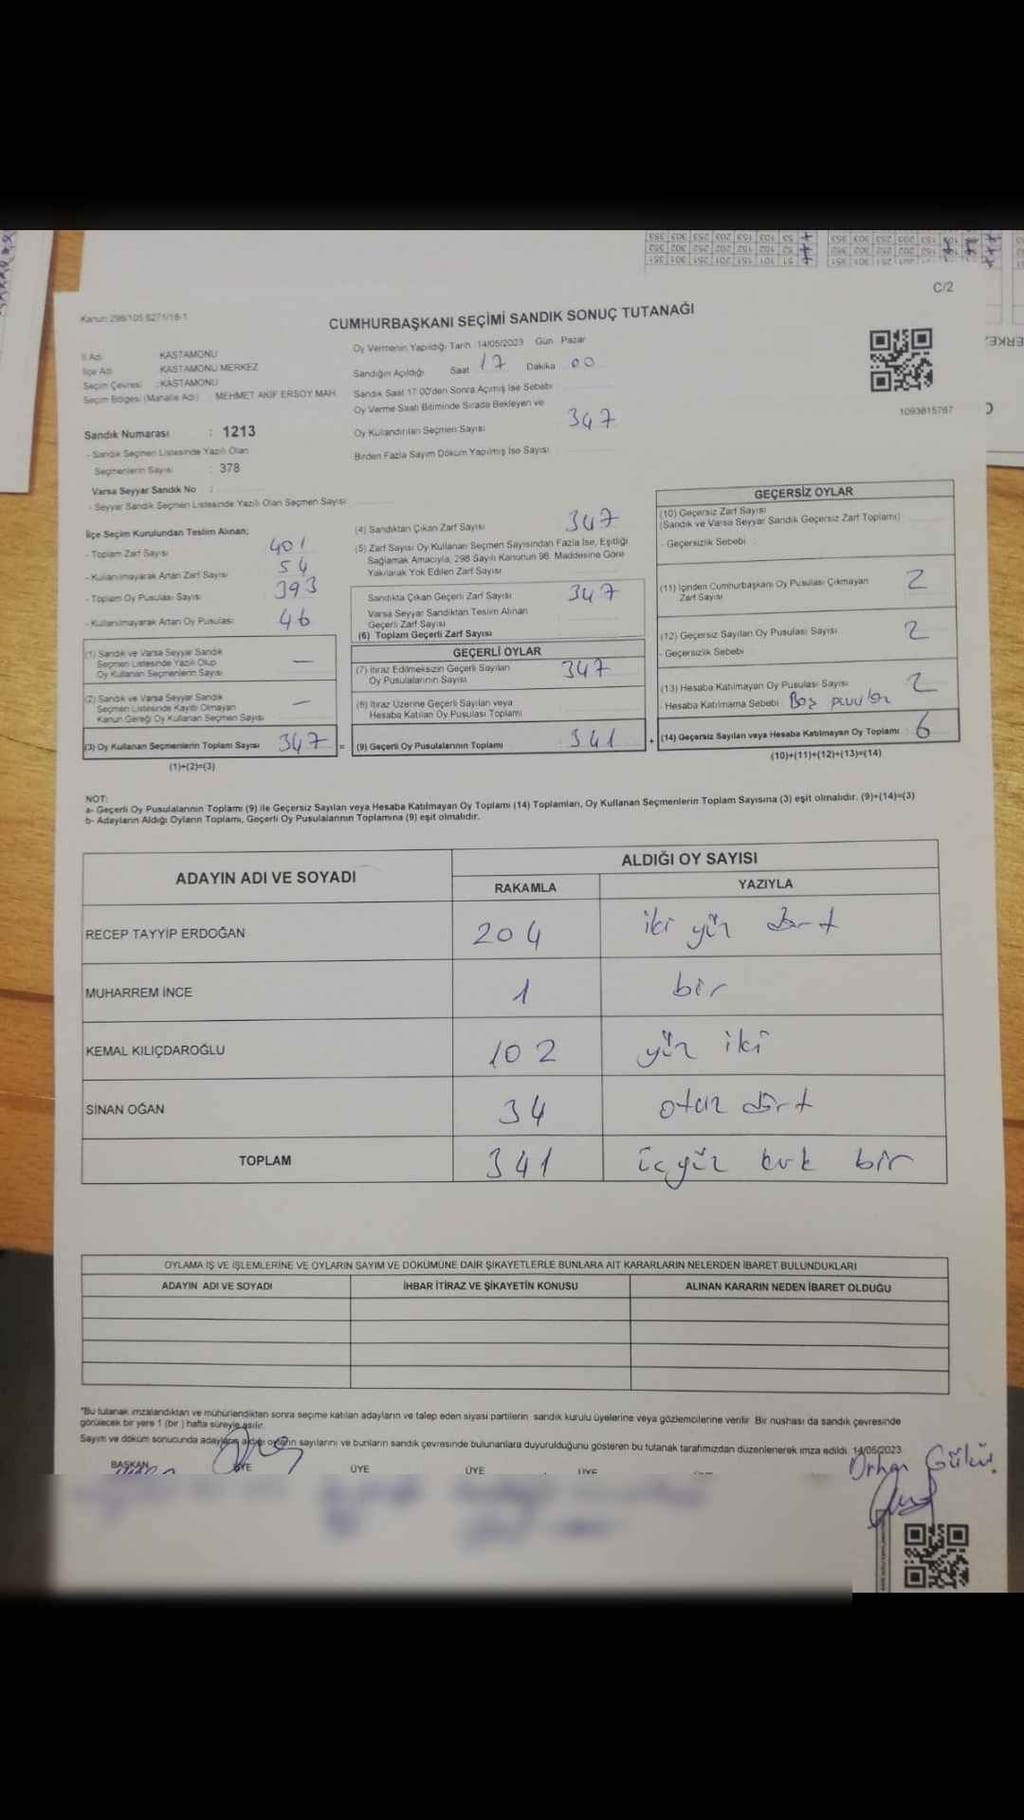 C/2
Kanun: 298/105 6271/16-1
CUMHURBAŞKANI SEÇİMİ SANDIK SONUÇ TUTANAĞI
İl Adı : KASTAMONU
İlçe Adı : KASTAMONU MERKEZ
Seçim Çevresi : KASTAMONU
Seçim Bölgesi (Mahalle Adı) : MEHMET AKİF ERSOY MAH.
Sandık Numarası : 1213
- Sandık Seçmen Listesinde Yazılı Olan
Seçmenlerin Sayısı : 378
Varsa Seyyar Sandık No :
- Seyyar Sandık Seçmen Listesinde Yazılı Olan Seçmen Sayısı
Oy Vermenin Yapıldığı Tarih 14/05/2023 Gün Pazar
Sandığın Açıldığı Saat 17 Dakika 00
Sandık Saat 17:00'den Sonra Açılmış İse Sebebi
Oy Verme Saati Bitiminde Sırada Bekleyen ve
Oy Kullandırılan Seçmen Sayısı 347
Birden Fazla Sayım Döküm Yapılmış İse Sayısı
1093815767
İlçe Seçim Kurulundan Teslim Alınan;
- Toplam Zarf Sayısı 401
- Kullanılmayarak Artan Zarf Sayısı 54
- Toplam Oy Pusulası Sayısı 393
- Kullanılmayarak Artan Oy Pusulası 46
(1) Sandık ve Varsa Seyyar Sandık
Seçmen Listesinde Yazılı Olup
Oy Kullanan Seçmenlerin Sayısı —
(2) Sandık ve Varsa Seyyar Sandık
Seçmen Listesinde Kayıtlı Olmayan
Kanun Gereği Oy Kullanan Seçmen Sayısı —
(3) Oy Kullanan Seçmenlerin Toplam Sayısı 347 =
(1)+(2)=(3)
(4) Sandıktan Çıkan Zarf Sayısı 347
(5) Zarf Sayısı Oy Kullanan Seçmen Sayısından Fazla İse, Eşitliği
Sağlamak Amacıyla, 298 Sayılı Kanunun 98. Maddesine Göre
Yakılarak Yok Edilen Zarf Sayısı
Sandıkta Çıkan Geçerli Zarf Sayısı 347
Varsa Seyyar Sandıktan Teslim Alınan
Geçerli Zarf Sayısı
(6) Toplam Geçerli Zarf Sayısı
GEÇERLİ OYLAR
(7) İtiraz Edilmeksizin Geçerli Sayılan
Oy Pusulalarının Sayısı 347
(8) İtiraz Üzerine Geçerli Sayılan veya
Hesaba Katılan Oy Pusulası Toplamı
(9) Geçerli Oy Pusulalarının Toplamı 341 +
GEÇERSİZ OYLAR
(10) Geçersiz Zarf Sayısı
(Sandık ve Varsa Seyyar Sandık Geçersiz Zarf Toplamı)
- Geçersizlik Sebebi
(11) İçinden Cumhurbaşkanı Oy Pusulası Çıkmayan
Zarf Sayısı 2
(12) Geçersiz Sayılan Oy Pusulası Sayısı 2
- Geçersizlik Sebebi
(13) Hesaba Katılmayan Oy Pusulası Sayısı 2
- Hesaba Katılmama Sebebi Boş
(14) Geçersiz Sayılan veya Hesaba Katılmayan Oy Toplamı : 6
(10)+(11)+(12)+(13)=(14)
NOT:
a- Geçerli Oy Pusulalarının Toplamı (9) ile Geçersiz Sayılan veya Hesaba Katılmayan Oy Toplamı (14) Toplamları, Oy Kullanan Seçmenlerin Toplam Sayısına (3) eşit olmalıdır. (9)+(14)=(3)
b- Adayların Aldığı Oyların Toplamı, Geçerli Oy Pusulalarının Toplamına (9) eşit olmalıdır.
ADAYIN ADI VE SOYADI ALDIĞI OY SAYISI
RAKAMLA YAZIYLA
RECEP TAYYİP ERDOĞAN 204 iki yüz dört
MUHARREM İNCE 1 bir
KEMAL KILIÇDAROĞLU 102 yüz iki
SİNAN OĞAN 34 otuz dört
TOPLAM 341 üçyüz kırk bir
OYLAMA İŞ VE İŞLEMLERİNE VE OYLARIN SAYIM VE DÖKÜMÜNE DAİR ŞİKAYETLERLE BUNLARA AİT KARARLARIN NELERDEN İBARET BULUNDUKLARI
ADAYIN ADI VE SOYADI İHBAR İTİRAZ VE ŞİKAYETİN KONUSU ALINAN KARARIN NEDEN İBARET OLDUĞU
"Bu tutanak imzalandıktan ve mühürlendikten sonra seçime katılan adayların ve talep eden siyasi partilerin sandık kurulu üyelerine veya gözlemcilerine verilir. Bir nüshası da sandık çevresinde
görülecek bir yere 1 (bir ) hafta süreyle asılır.
Sayım ve döküm sonucunda adayların aldığı oyların sayılarını ve bunların sandık çevresinde bulunanlara duyurulduğunu gösteren bu tutanak tarafımızdan düzenlenerek imza edildi. 14/05/2023
BAŞKAN ÜYE ÜYE ÜYE ÜYE
Orhan